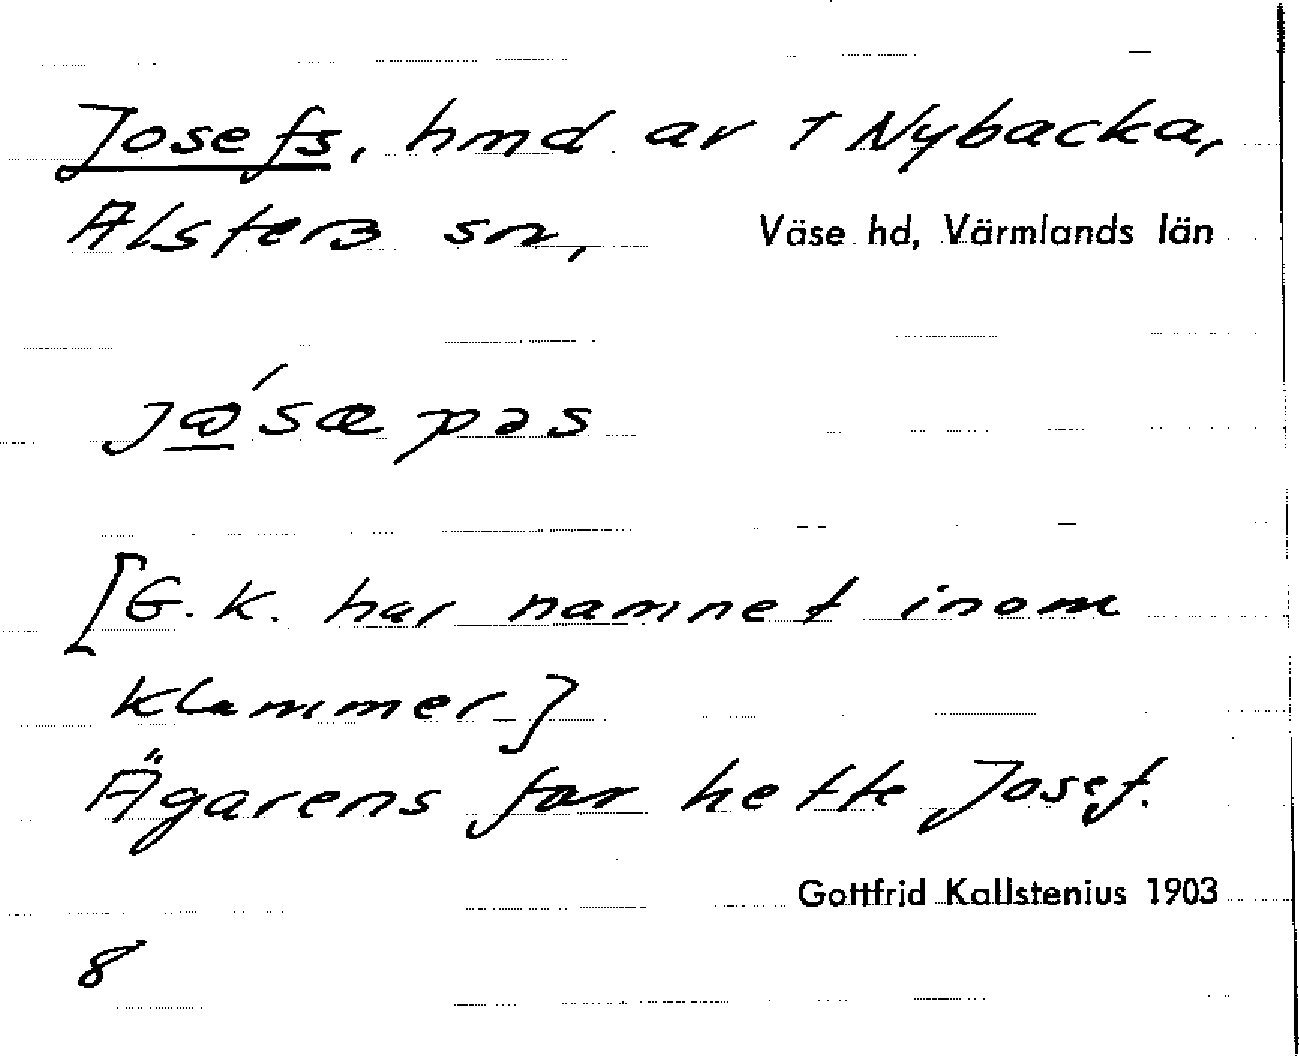 Josefs, hmd av 1 Nybacka,
Alsters sn, Väse hd, Värmlands län
jώsæpəs
[G.K. har namnet inom
klammer.]
Ägarens far hette Josef.
Gottfrid Kallstenius 1903
8